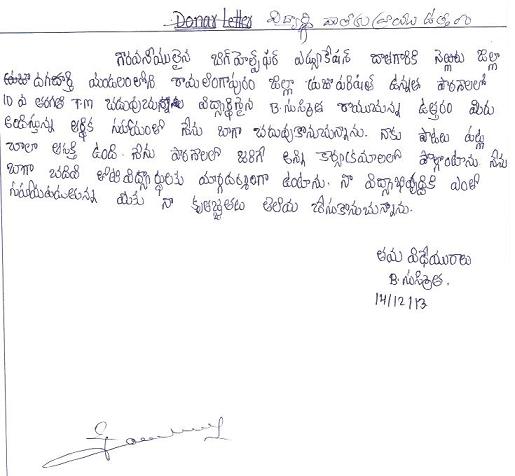 Donar Letter విద్యార్థి వివరములు వ్రాయు ఉత్తరం
గౌరవనీయులైన బిగ్ హెల్ప్ ఫర్ ఎడ్యుకేషన్ దాతగారికి నెల్లూరు జిల్లా
దగదర్తి మండలంలోని రామలింగాపురం జిల్లా పరిషత్ ఉన్నత పాఠశాలలో
10 వ తరగతి T.M చదువుచున్న విద్యార్థినైన B.సుస్మిత వ్రాయుచున్న ఉత్తరం మీరు
చేస్తున్న ఆర్థిక సహాయంతో నేను బాగా చదువుకొనుచున్నాను. నాకు పాటలు
చాలా ఆసక్తి ఉంది. నేను పాఠశాలలో జరిగే అన్ని కార్యక్రమాలలో పాల్గొంటాను నేను
బాగా చదివి తోటి విద్యార్థులకు మార్గదర్శిగా ఉంటాను. నా విద్యాభివృద్ధికి ఎంతో
సహాయపడుతున్న మీకు నా కృతజ్ఞతలు తెలియ చేసుకొనుచున్నాను.
తమ విధేయురాలు
B.సుస్మిత.
14/12/13